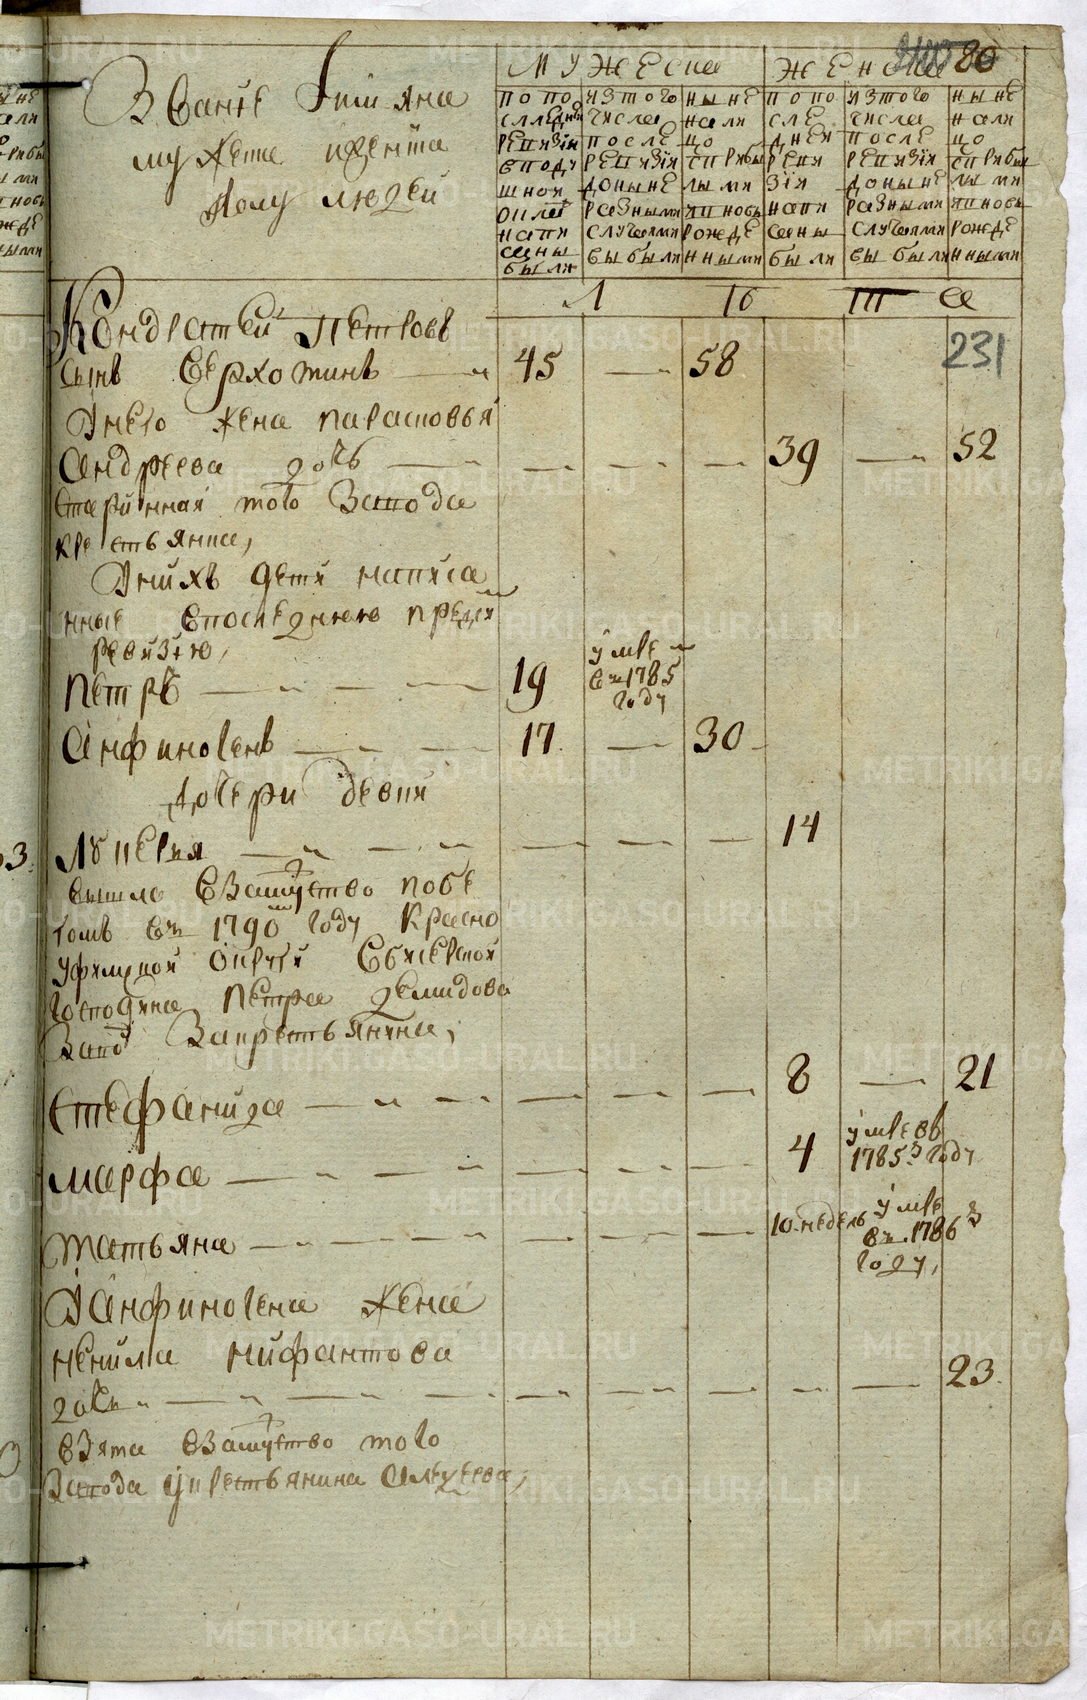 80
231
Званїе Имяна
мужеска иженска
полу людей
МУЖЕСКА
ЖЕНСКА
попо следней ревизїи вподушной оклад написаны были
изтого числа после ревизїи доныне разными случаями выбыли
ныне нали цо сприбылыми ивновь рожденными
попо сле дней реви зїи напи саны были
изтого числа после ревизїи доныне разными случаями выбыли
ныне нали цо сприбылыми ивновь рожденными
Кондратей Петровъ
сынъ Верхотинъ 45 58
Унего жена парасковья
андреева дочь 39 52
старинная того Завода
крестьянка,
Унихъ дети написа
нные впоследнюю пред
ревизїю,
петръ 19 умре въ 1785 году
анфиногенъ 17 30
дочери девки
Лукерья 14
вышла взамужство побе
гомъ въ 1790 году Красно
уфимской округи
Господина Петра демидова
Завод Закрестьянина,
Стефанида 8 21
марфа 4 умре въ 1785 году
татьяна 10 недель умре въ 1786 году,
Уанфиногена жена
ненила нифантова
дочь 23
взята взамужство того
Завода укрестьянина